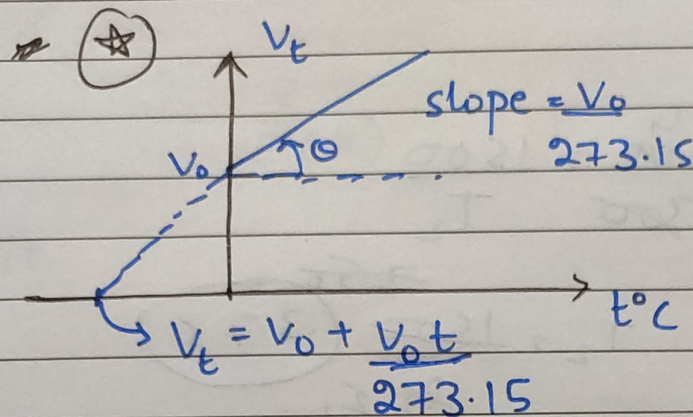 V_t
slope = V₀/273.15
V₀
θ
t°C
V_t = V₀ + V₀t/273.15